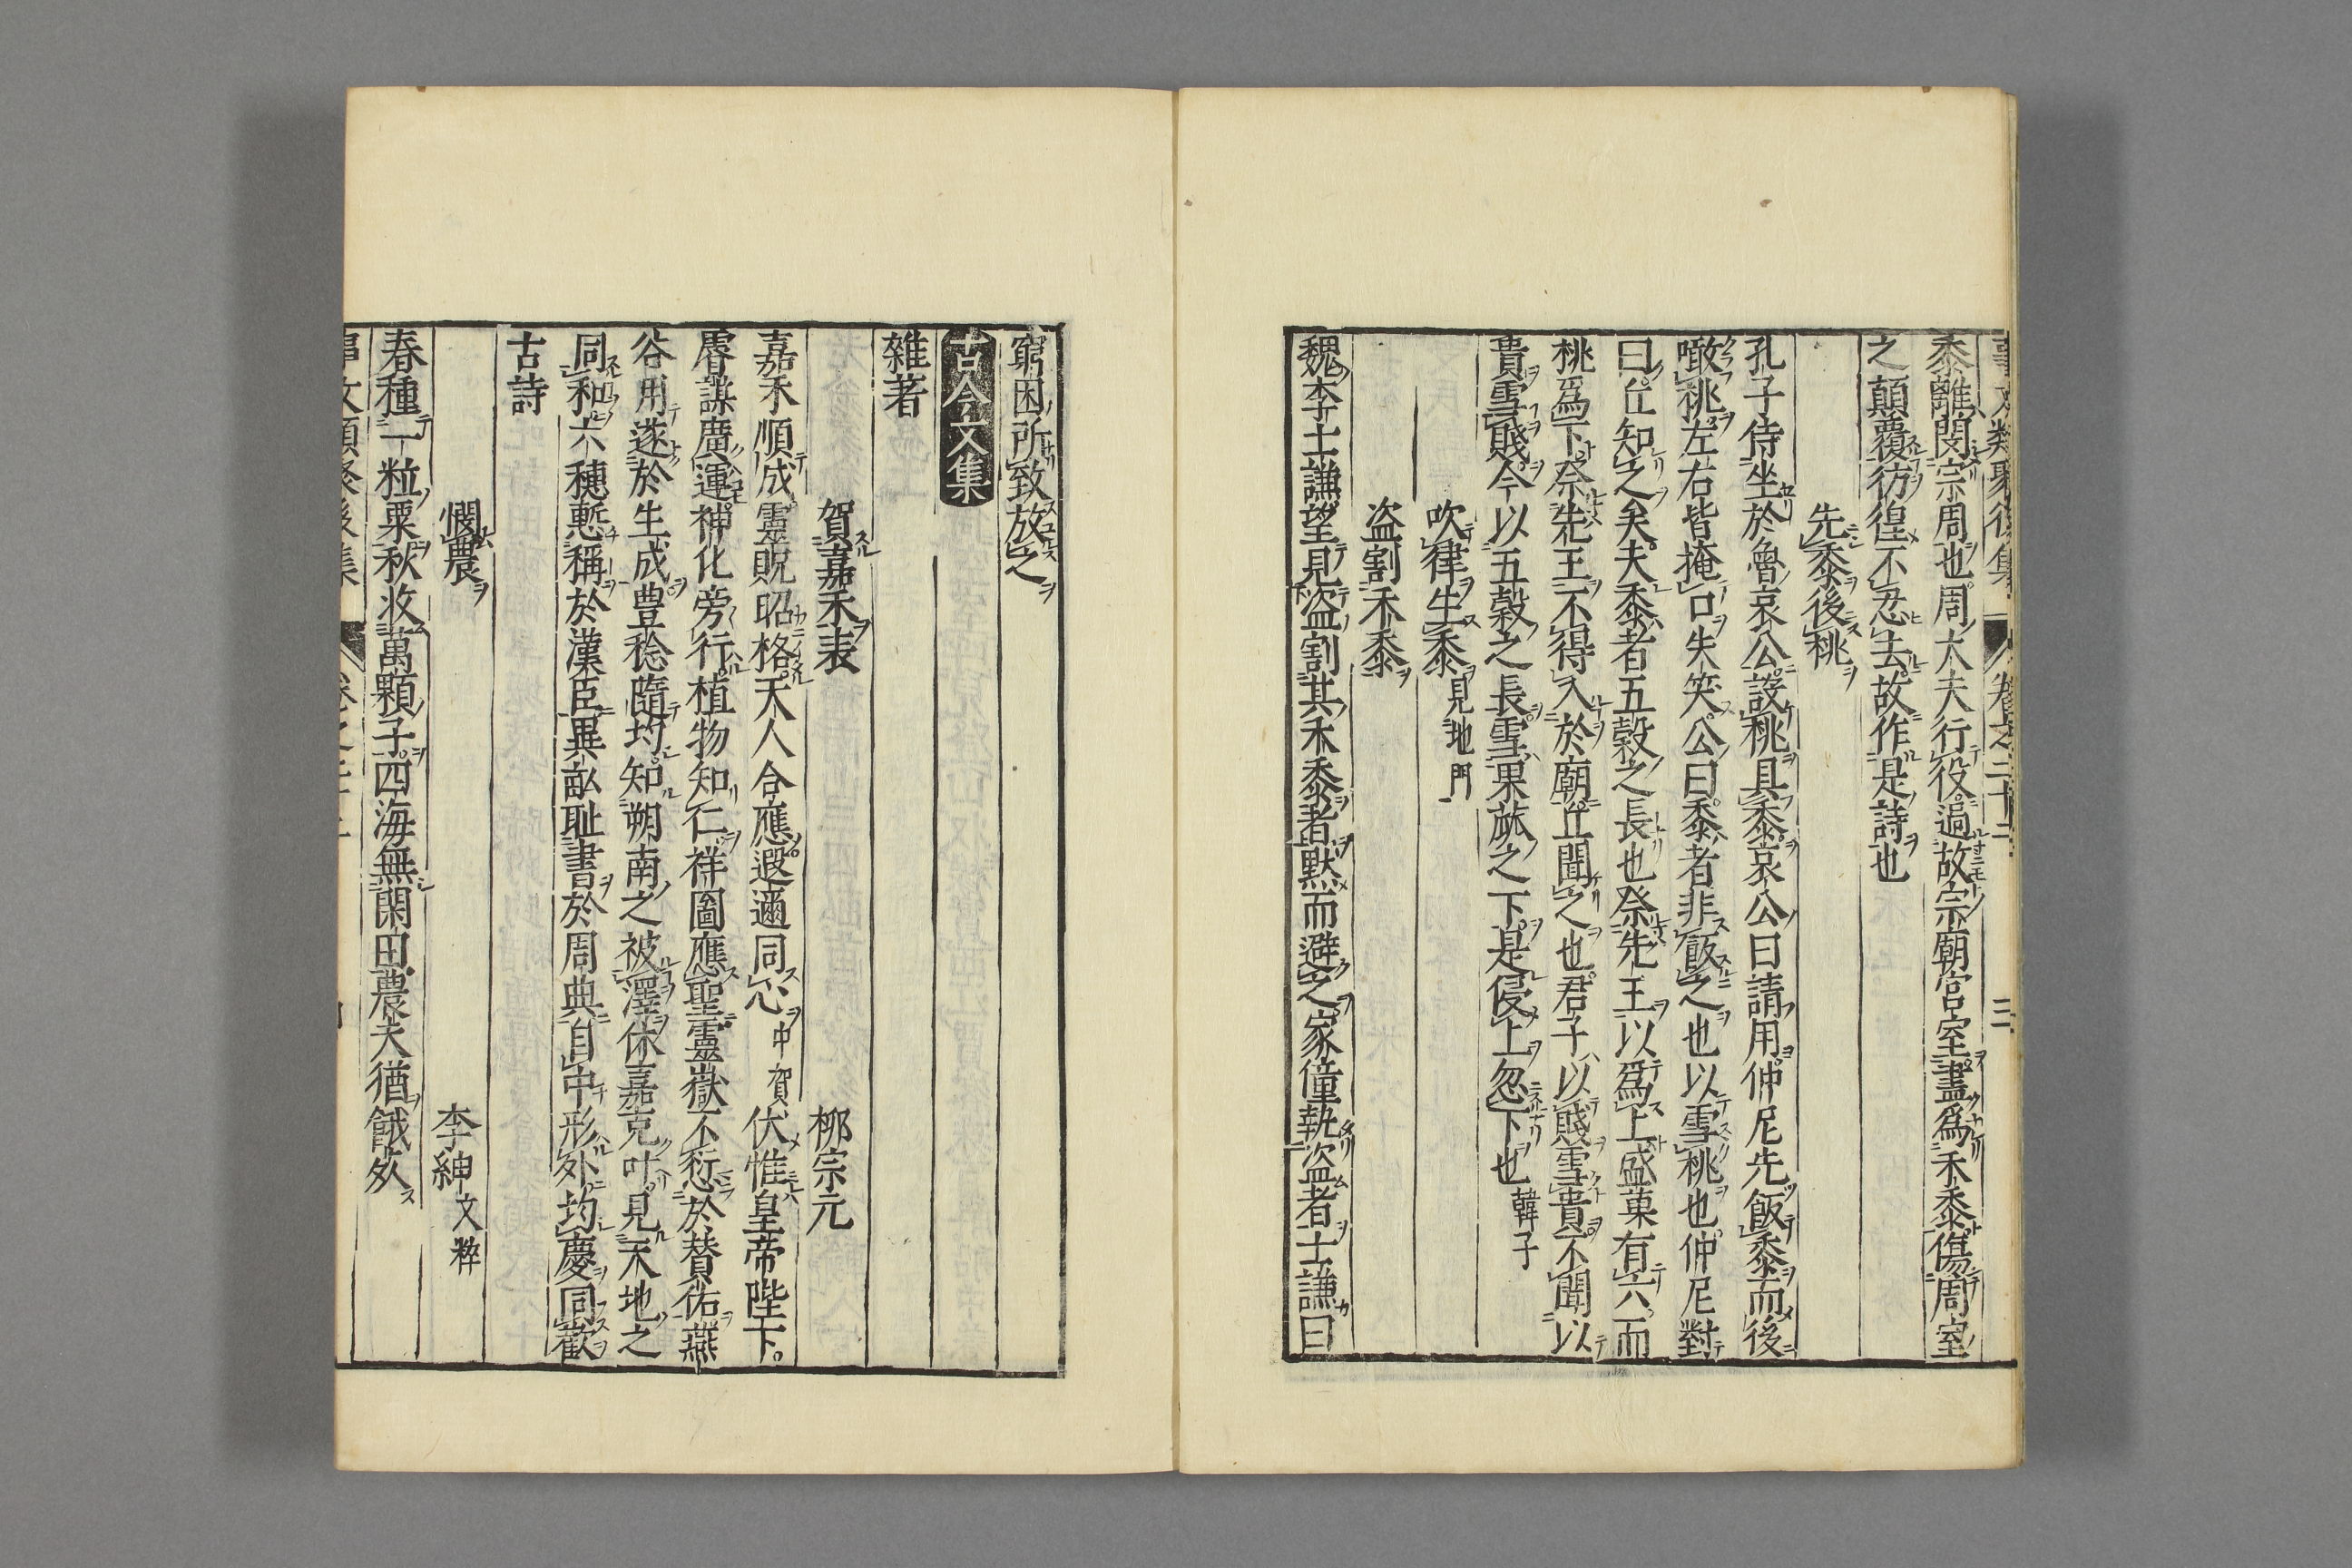 事文類聚後集 卷之二十二 三
黍離閔宗周也周大夫行役過故宗廟宮室盡爲禾黍傷周室
之顚覆彷徨不忍去故作是詩也
先黍後桃
孔子侍坐於魯哀公設桃具黍哀公曰請用仲尼先飯黍而後
噉桃左右皆掩口失笑公曰黍者非飯之也以雪桃也仲尼對
曰丘知之矣夫黍者五穀之長也祭先王以爲上盛菓有六而
桃爲下祭先王不得入於廟丘聞之也君子以賤雪貴不聞以
貴雪賤今以五穀之長雪果蓏之下是侵上忽下也韓子
吹律生黍見地門
盗割禾黍
魏李士謙望見盗割其禾黍者默而避之家僮執盗者士謙曰
窮困所致放之
古今文集
雜著
賀嘉禾表 柳宗元
嘉禾順成靈貺昭格天人合應遐邇同心中賀伏惟皇帝陛下
睿謀廣運神化旁行植物知仁祥圖應聖靈嶽不愆於賛佑燕
谷用遂於生成豊稔隨均知朔南之被澤休嘉克叶見天地之
同和六穗慙稱於漢臣異畝耻書於周典自中形外均慶同歡
古詩
憫農 李紳文粹
春種一粒粟秋收萬顆子四海無閑田農夫猶餓死